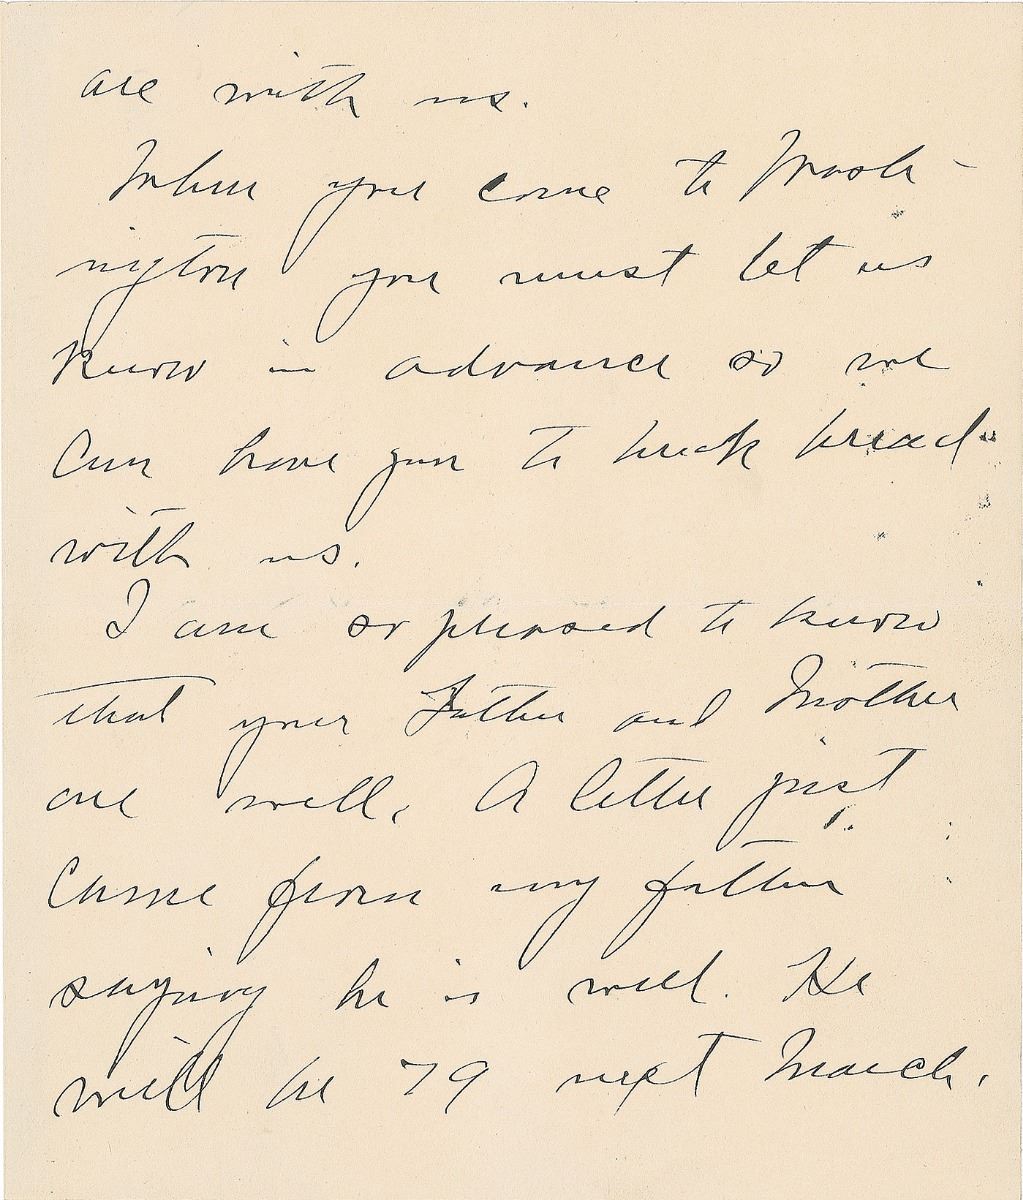 are with us.
When you come to Wash-
ington you must let us
know in advance so we
can have you to break bread
with us.
I am so pleased to know
that your Father and Mother
are well. A letter just
came from my father
saying he is well. He
will be 79 next March.